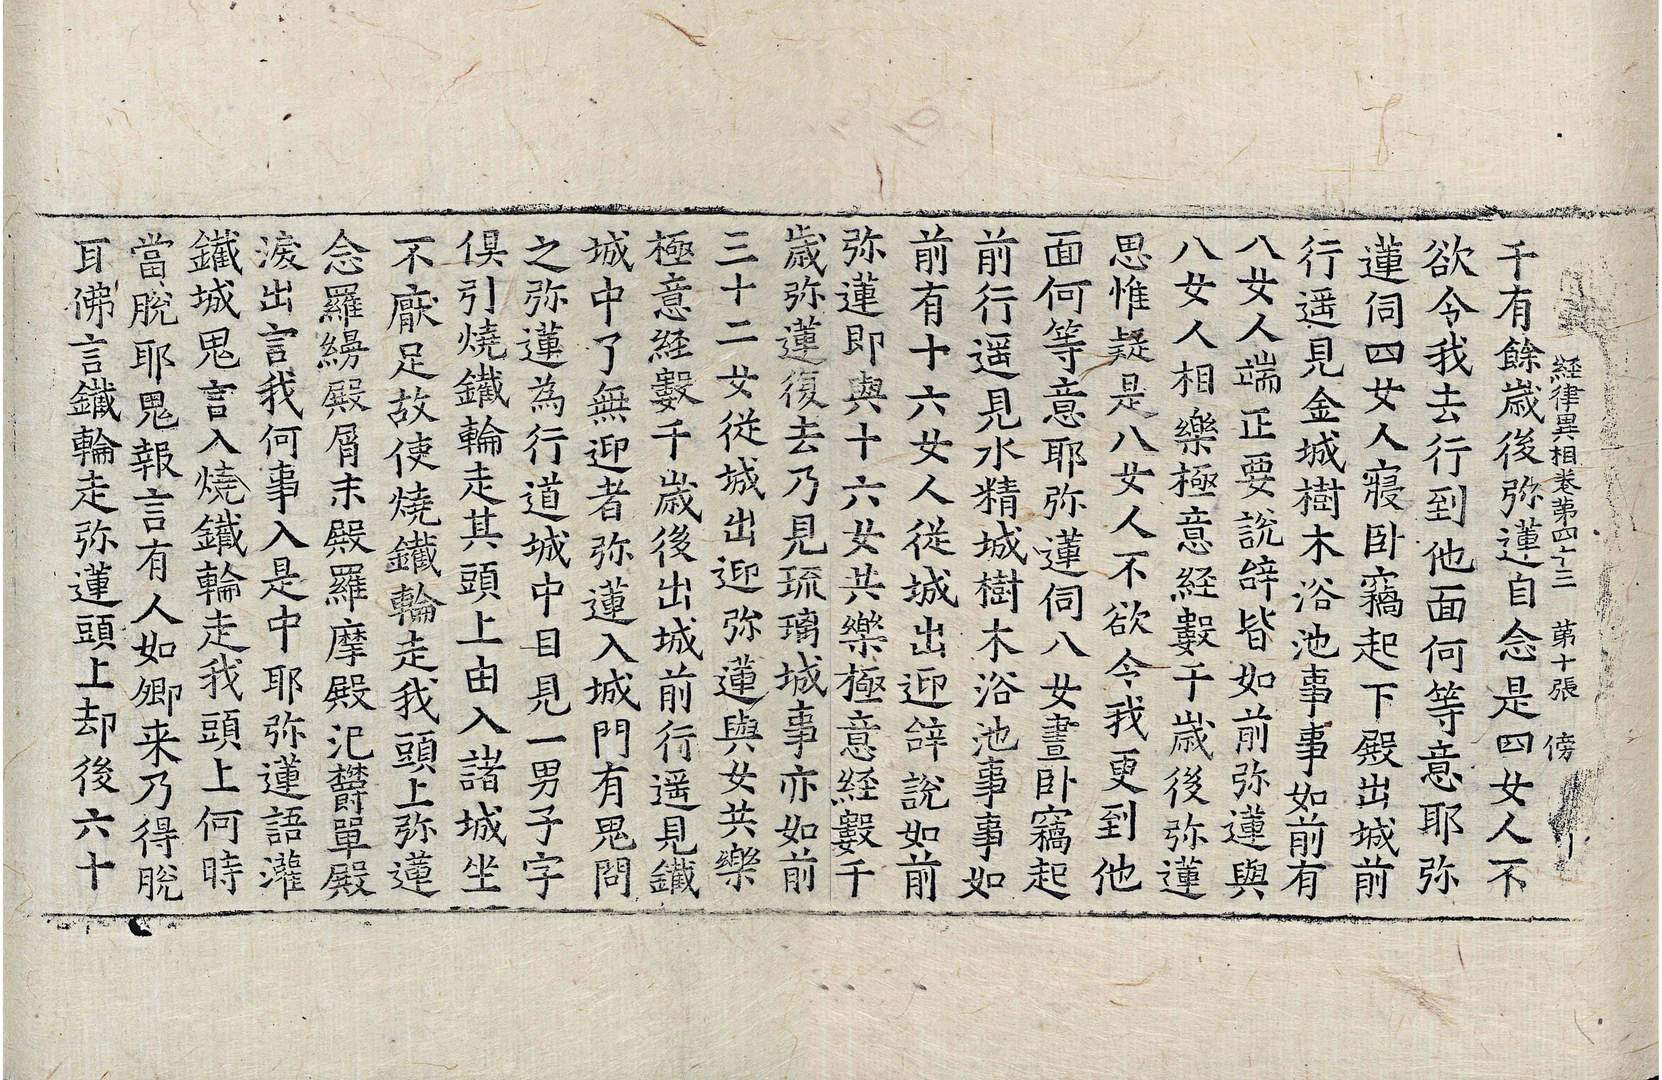 經律異相卷第四十三 第十張 傍
千有餘歲後弥蓮自念是四女人不
欲令我去行到他面何等意耶弥
蓮伺四女人寢卧竊起下殿出城前
行遥見金城樹木浴池事事如前有
八女人端正要說辝皆如前弥蓮與
八女人相樂極意經數千歲後弥蓮
思惟疑是八女人不欲令我更到他
面何等意耶弥蓮伺八女晝卧竊起
前行遥見水精城樹木浴池事事如
前有十六女人從城出迎辝說如前
弥蓮即與十六女共樂極意經數千
歲弥蓮復去乃見琉璃城事亦如前
三十二女從城出迎弥蓮與女共樂
極意經數千歲後出城前行遥見鐵
城中了無迎者弥蓮入城門有鬼問
之弥蓮為行道城中目見一男子字
俱引燒鐵輪走其頭上由入諸城坐
不厭足故使燒鐵輪走我頭上弥蓮
念羅縵殿屑末殿羅摩殿氾欝單殿
淚出言我何事入是中耶弥蓮語灌
鐵城鬼言入燒鐵輪走我頭上何時
當脫耶鬼報言有人如卿来乃得脫
耳佛言鐵輪走弥蓮頭上却後六十